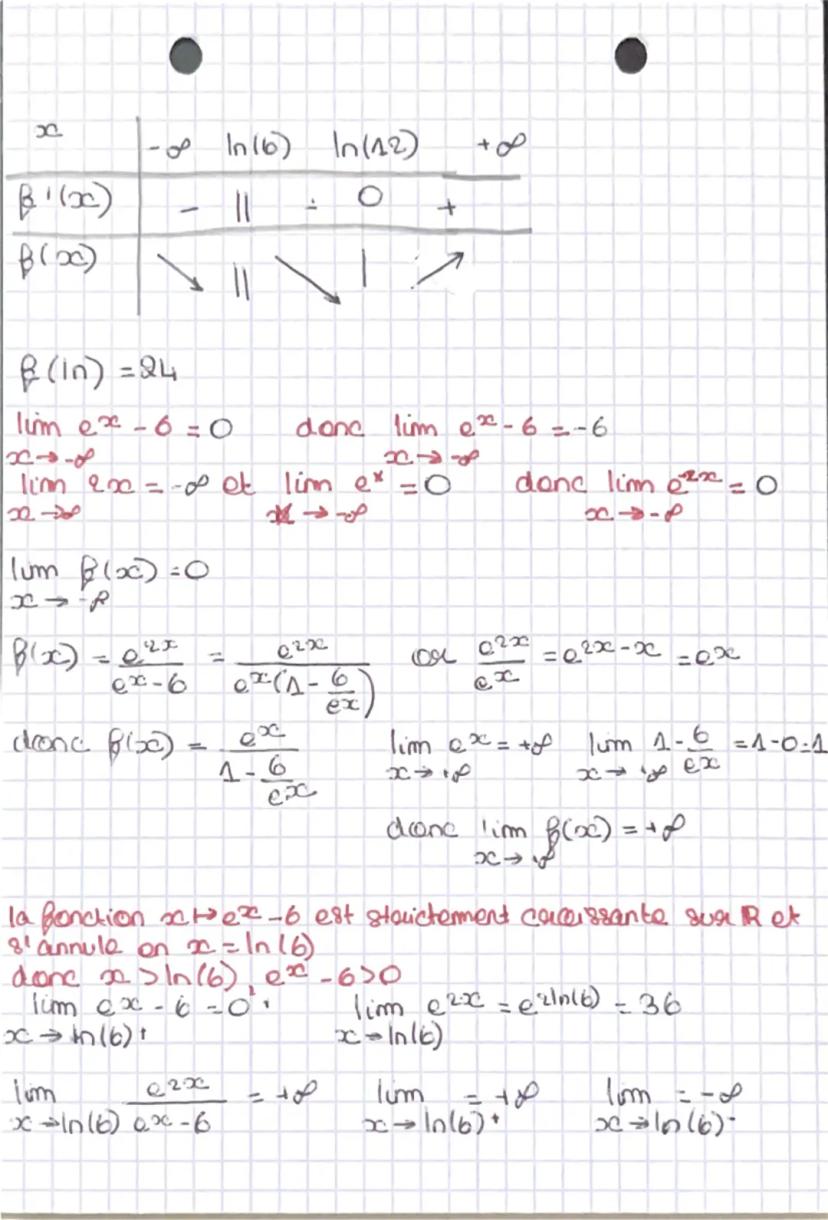 x | -∞ ln(6) ln(12) +∞
f'(x) | - || - 0 +
f(x) | ↘ || ↘ | ↗
f(ln) = 24
lim e^x - 6 = 0 donc lim e^x - 6 = -6
x → -∞ x → -∞
lim 2x = -∞ et lim e^x = 0 donc lim e^2x = 0
x → ∞ x → -∞ x → -∞
lim f(x) = 0
x → -∞
f(x) = e^2x / (e^x - 6) = e^2x / (e^x(1 - 6/e^x)) or e^2x / e^x = e^2x-x = e^x
donc f(x) = e^x / (1 - 6/e^x) lim e^x = +∞ lim 1 - 6/e^x = 1-0=1
x → +∞ x → +∞
donc lim f(x) = +∞
x → +∞
la fonction x ↦ e^x - 6 est strictement croissante sur ℝ et
s'annule en x = ln(6)
donc x > ln(6), e^x - 6 > 0
lim e^x - 6 = 0+ lim e^2x = e^2ln(6) = 36
x → ln(6)+ x → ln(6)
lim e^2x / (e^x - 6) = +∞ lim = +∞ lim = -∞
x → ln(6) x → ln(6)+ x → ln(6)-